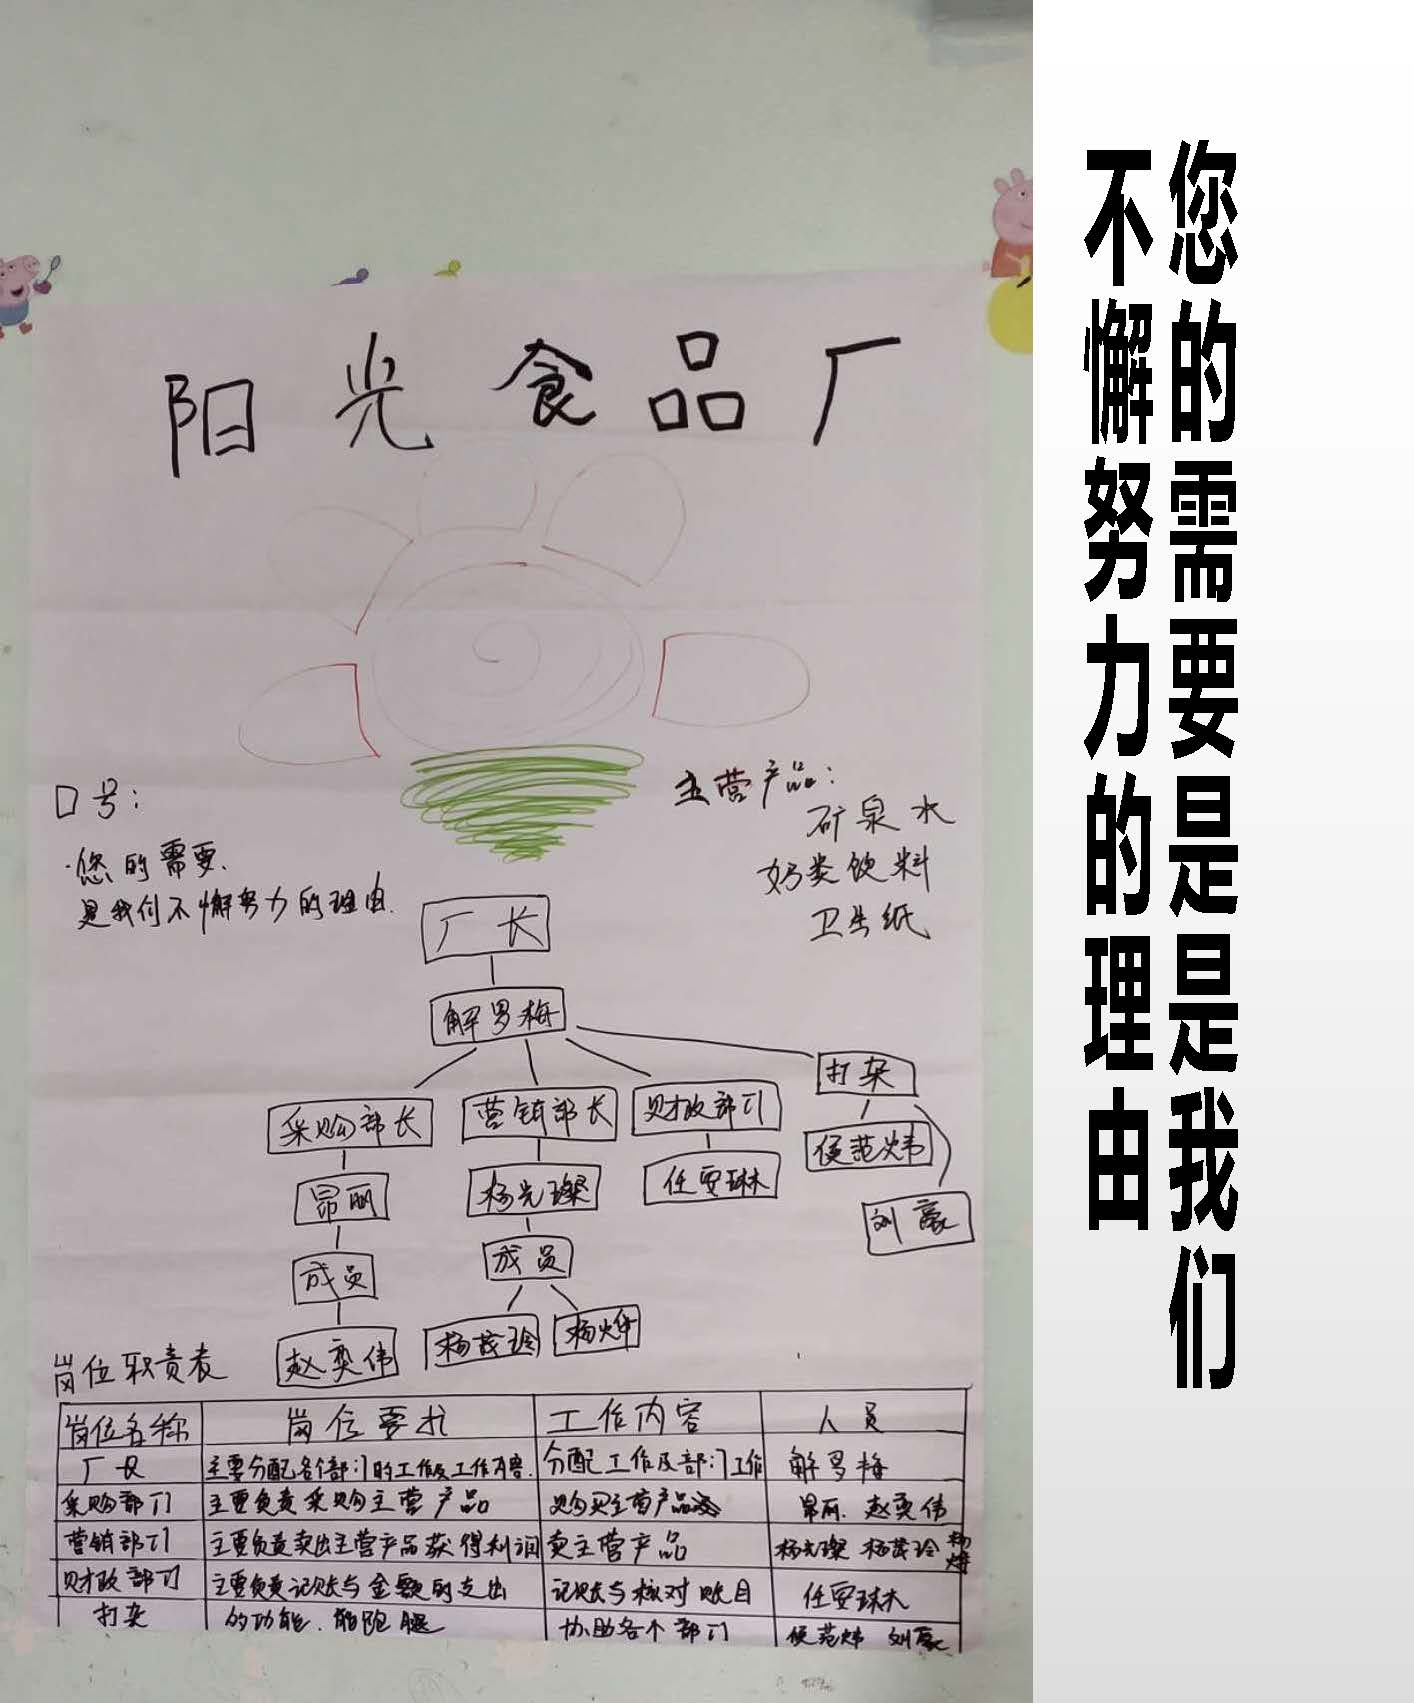 阳光食品厂
口号:
·您的需要.
是我们不懈努力的理由.
主营产品:
矿泉水
奶类饮料
卫生纸
厂长
解罗梅
采购部长
营销部长
财政部门
打杂
昂丽
杨光璨
任安琳
侯范炜
刘豪
成员
成员
赵奕伟
杨茂玲
杨烨
岗位职责表
岗位名称 岗位要求 工作内容 人员
厂长 主要分配各个部门的工作及工作内容. 分配工作及部门工作 解罗梅
采购部门 主要负责采购主营产品 购买主营产品 昂丽. 赵奕伟
营销部门 主要负责卖出主营产品获得利润 卖主营产品 杨光璨 杨茂玲 杨烨
财政部门 主要负责记账与金额的支出 记账与核对账目 任安琳
打杂 的功能. 能跑腿 协助各个部门 侯范炜 刘豪
您的需要是是我们
不懈努力的理由